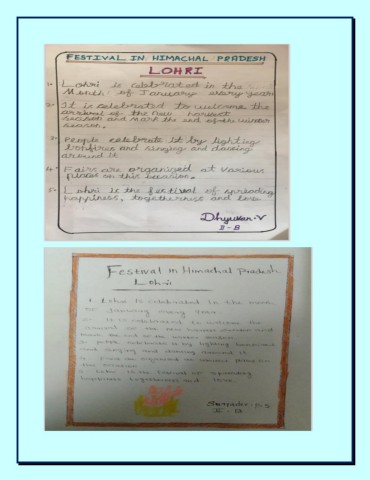 FESTIVAL IN HIMACHAL PRADESH
LOHRI
1. Lohri is celebrated in the
Month of January every year.
2. It is celebrated to welcome the
arrival of the new harvest
season and mark the end of the winter
season.
3. People celebrate it by lighting
bonfires and singing and dancing
around it.
4. Fairs are organized at various
places on this occasion.
5. Lohri is the festival of spreading
happiness, togetherness and love.
Dhyuvan.V
II-B
Festival in Himachal Pradesh
Lohri
1. Lohri is celebrated in the
of January every year
2. It is celebrated to welcome the
arrival of the new harvest season and
mark the end of the winter season
3. People celebrate it by lighting bonfires
and singing and dancing around it
4. Fairs are organized at various places on
this occasion
5. Lohri is the festival of spreading
happiness togetherness and love.
II-B